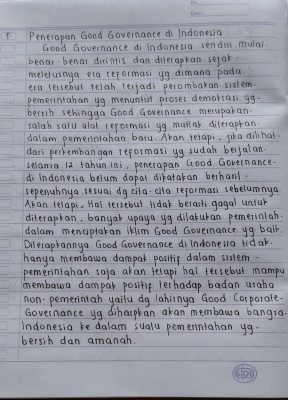 F. Penerapan Good Governance di Indonesia
Good Governance di Indonesia sendiri mulai
benar-benar dirintis dan diterapkan sejak
meletusnya era reformasi yg dimana pada
era tersebut telah terjadi perombakan sistem
pemerintahan yg menuntut proses demokrasi yg
bersih sehingga Good Governance merupakan
salah satu alat reformasi yg mutlak diterapkan
dalam pemerintahan baru. Akan tetapi, jika dilihat
dari perkembangan reformasi yg sudah berjalan
selama 12 tahun ini, penerapan Good Governance
di Indonesia belum dapat dikatakan berhasil
sepenuhnya sesuai dg cita-cita reformasi sebelumnya.
Akan tetapi, Hal tersebut tidak berarti gagal untuk
diterapkan, banyak upaya yg dilakukan pemerintah
dalam menciptakan iklim Good Governance yg baik.
Diterapkannya Good Governance di Indonesia tidak
hanya membawa dampak positif dalam sistem
pemerintahan saja akan tetapi hal tersebut mampu
membawa dampak positif terhadap badan usaha
non-pemerintah yaitu dg lahirnya Good Corporate
Governance yg diharpkan akan membawa bangsa
Indonesia ke dalam suatu pemerintahan yg
bersih dan amanah.
SIDU